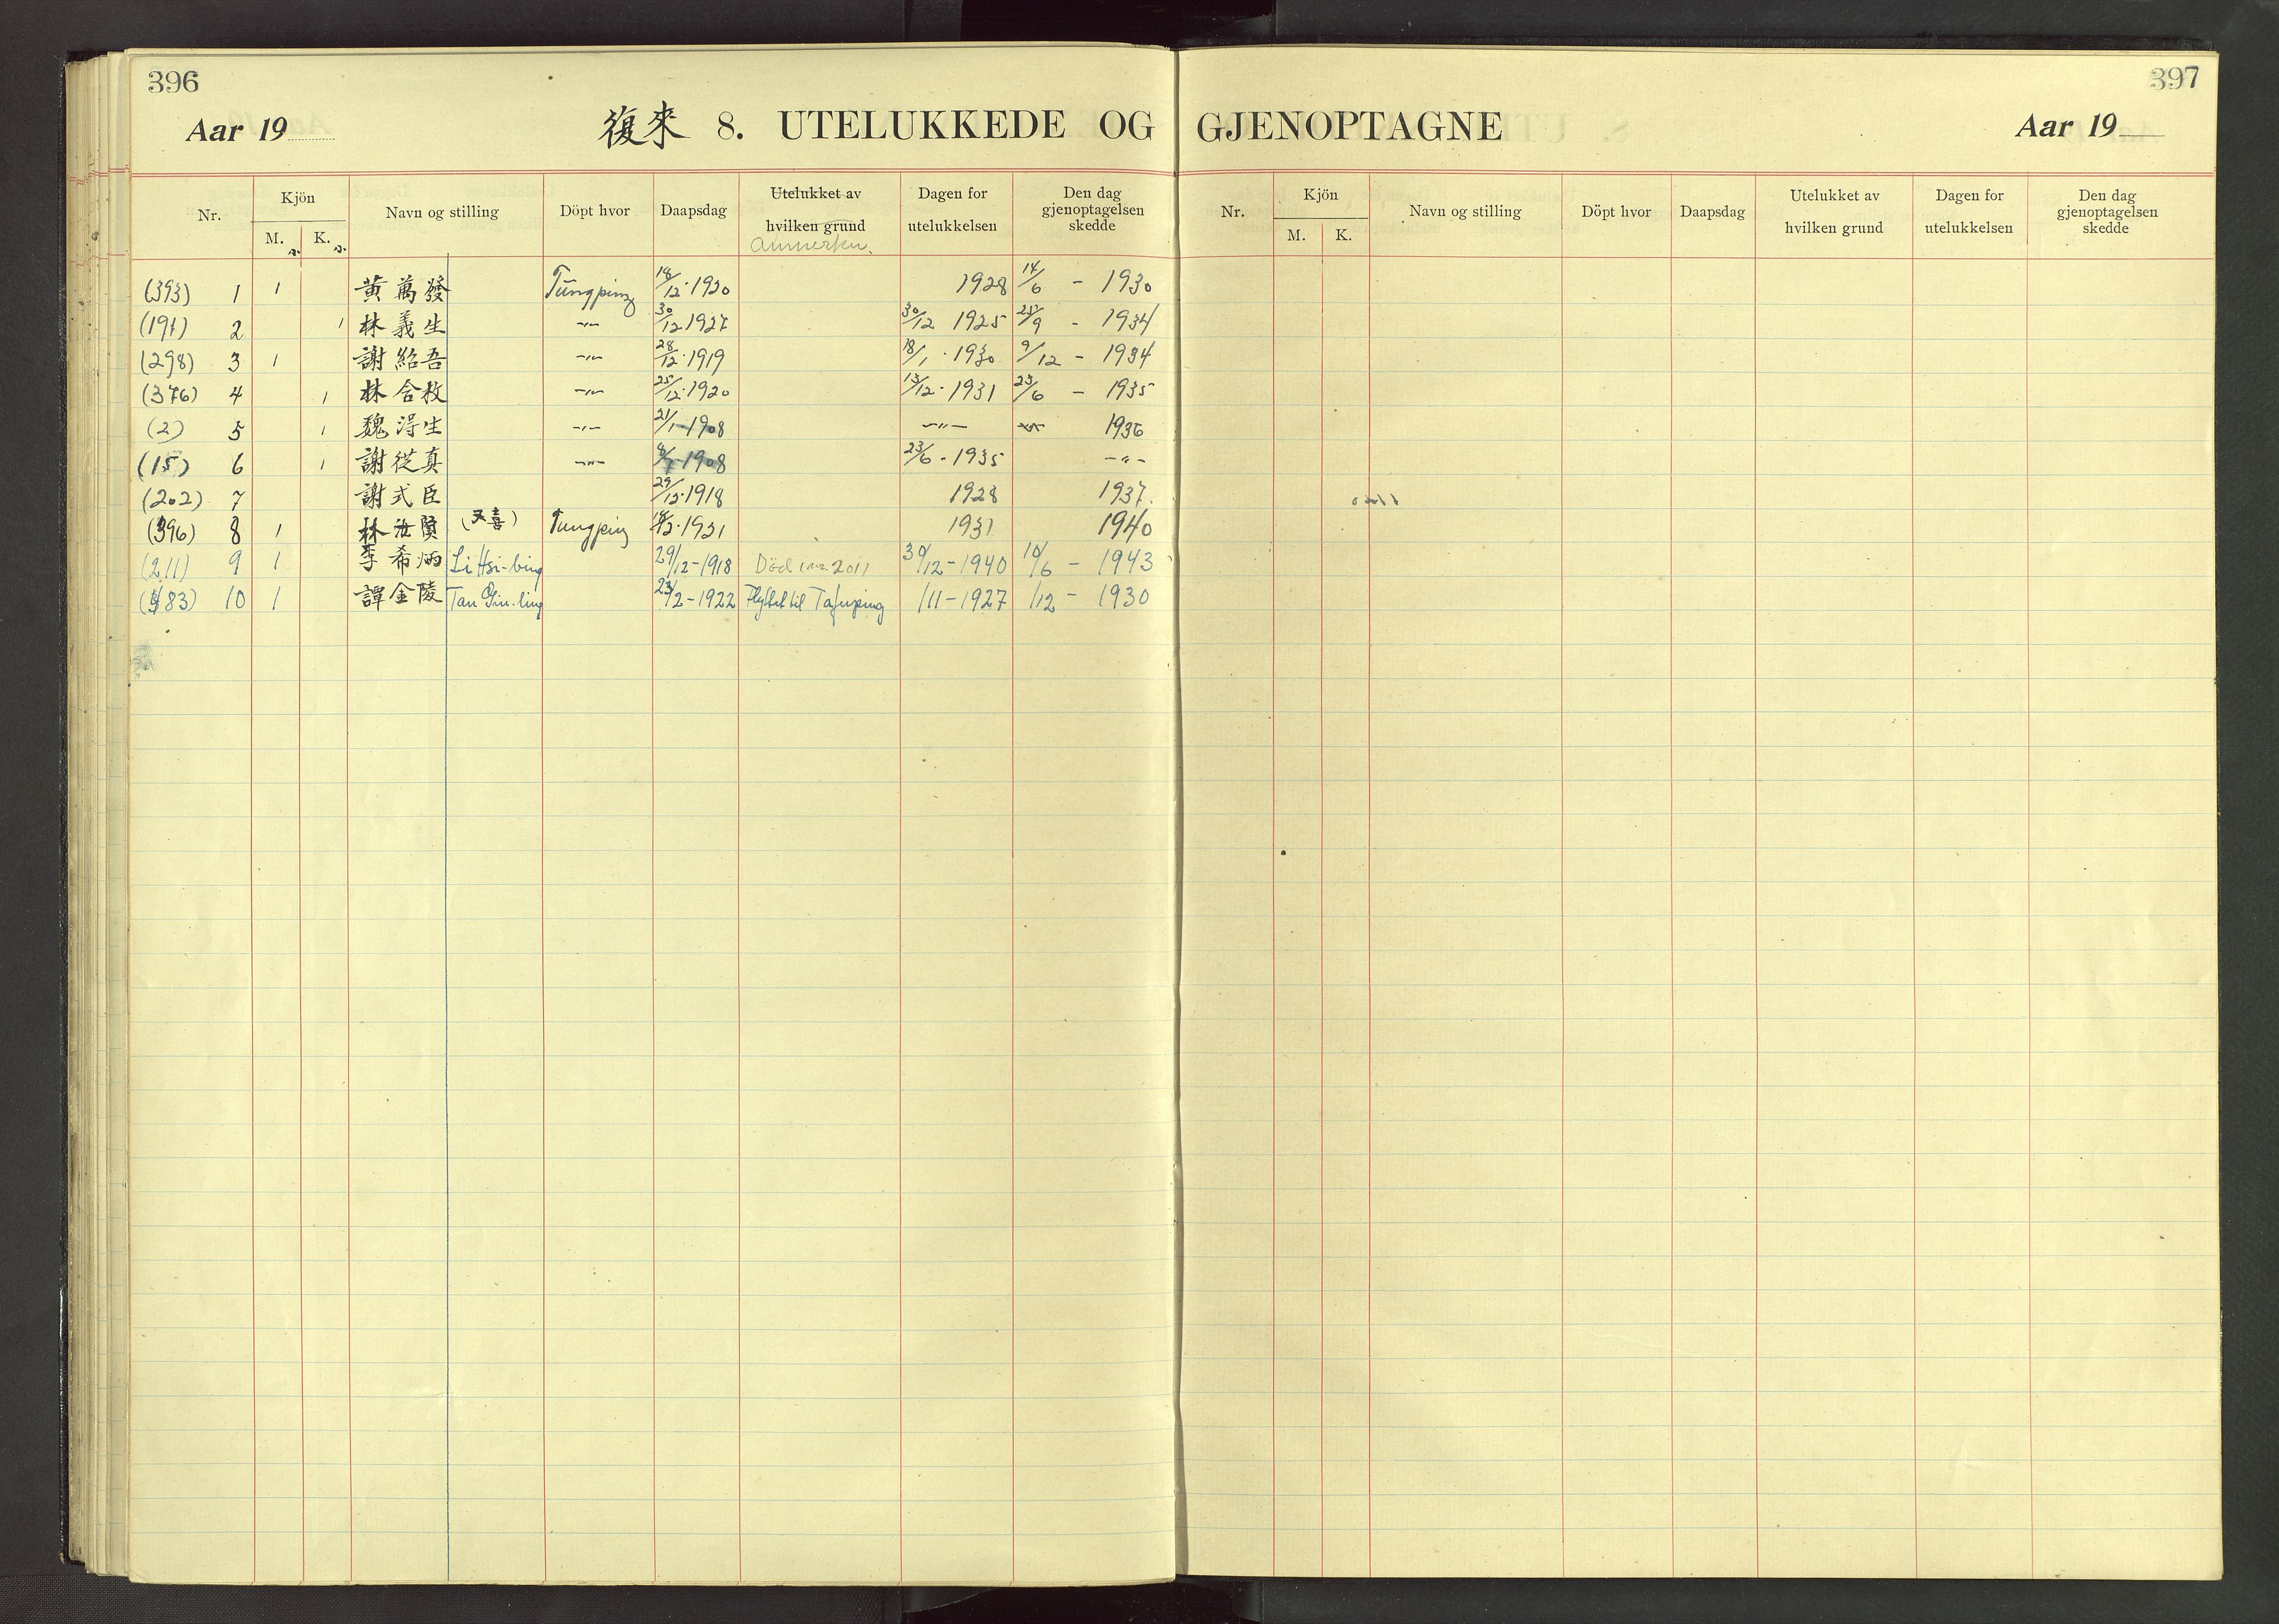 396
Aar 19
復來 8. UTELUKKEDE OG
Nr. Kjön M. K. Navn og stilling Döpt hvor Daapsdag Utelukket av hvilken grund Anmerkn. Dagen for utelukkelsen Den dag gjenoptagelsen skedde
(393) 1 1 黃萬發 Tungping 18/12·1920 1928 14/6 - 1930
(191) 2 1 林義生 -"- 30/12 1927 30/12 1925 25/9 - 1934
(298) 3 1 謝紹吾 -"- 28/12·1919 18/1·1930 9/12 - 1934
(376) 4 1 林合枚 -"- 25/12·1920 13/12·1931 23/6 - 1935
(2) 5 1 魏淂生 -"- 21/1-1908 -"- 1936
(15) 6 1 謝從真 -"- 1908 23/6-1935 -"-
(202) 7 謝式臣 29/12·1918 1928 1937.
(396) 8 1 林汝賢 (又喜) Tungping 1921 1931 1940
(211) 9 1 李希炳 Li Hsi-bing 29/12-1918 Död nr. 2011 30/12-1940 10/6 - 1943
(483) 10 1 譚金陵 Tan Gin-ling 23/2-1922 Flyttet til Tafuping /11-1927 1/12 - 1930
397
GJENOPTAGNE
Aar 19
Nr. Kjön M. K. Navn og stilling Döpt hvor Daapsdag Utelukket av hvilken grund Dagen for utelukkelsen Den dag gjenoptagelsen skedde